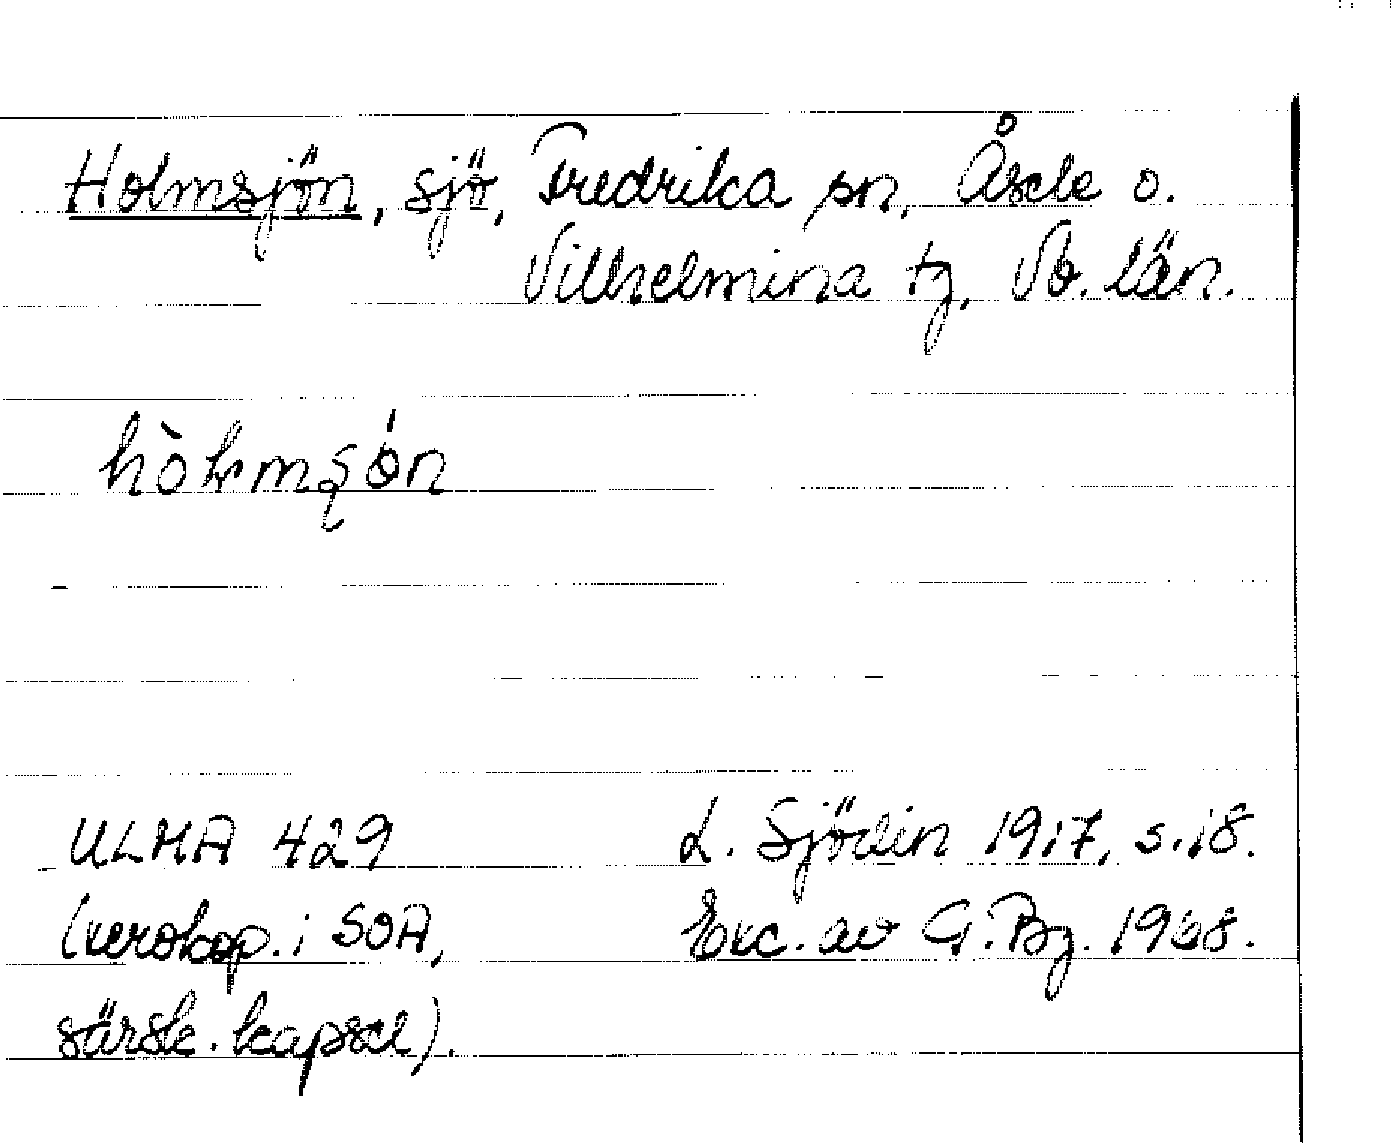 Holmsjön, sjö, Fredrika sn, Åsele o.
Vilhelmina tg, Vb. län.
ULMA 429
L. Sjödin 1917, s. 18.
(xerokop. i SOA,
Exc. av G. Bg. 1968.
särsk. kapsel).